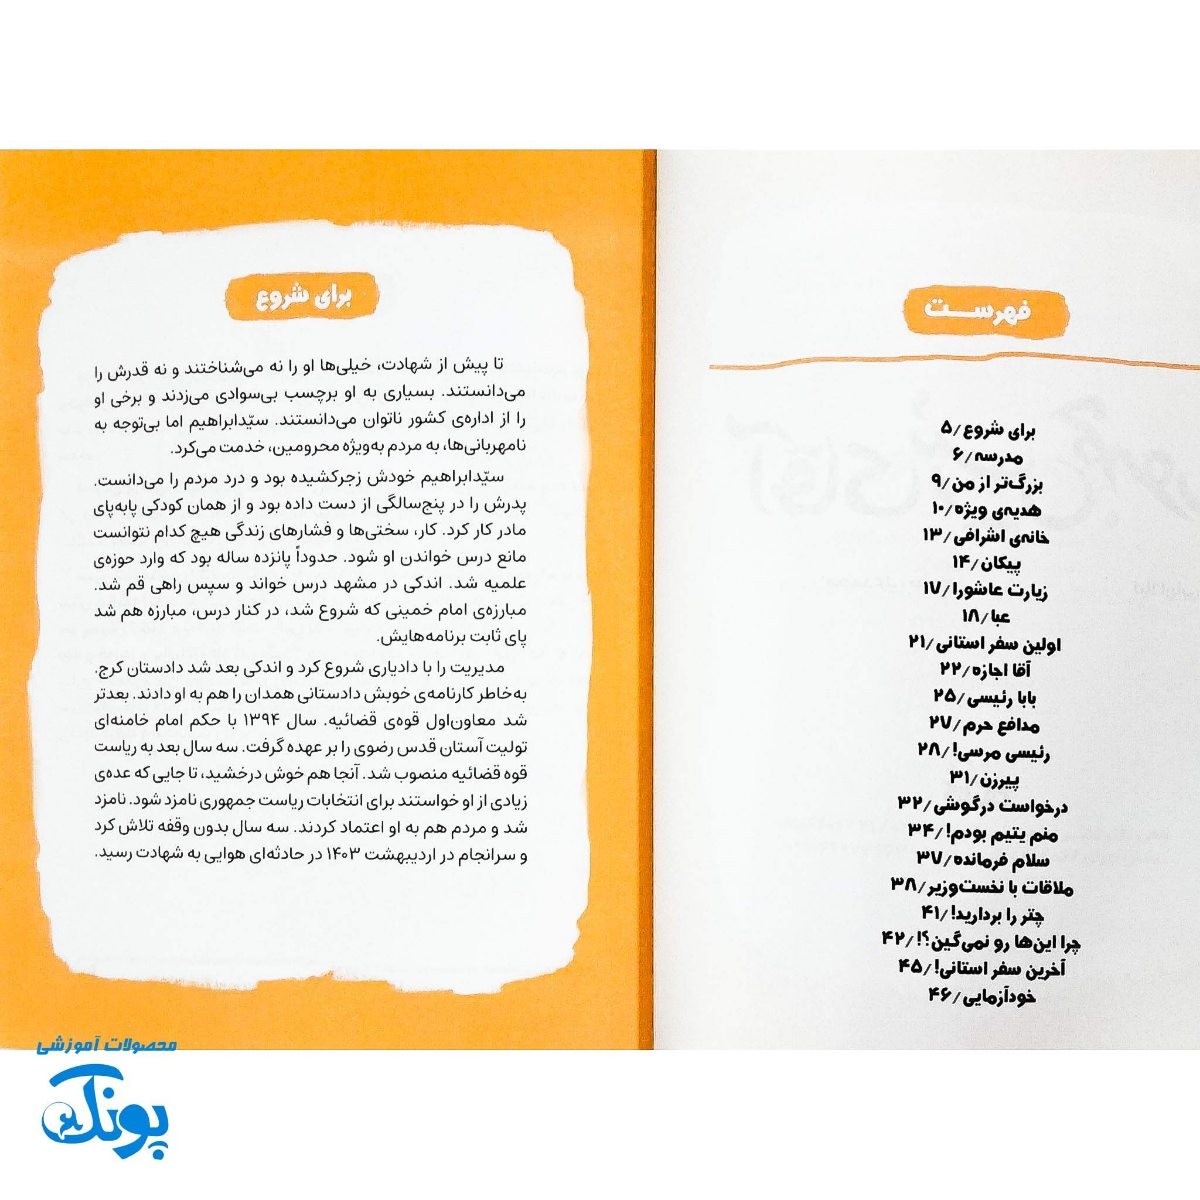 فهرست
برای شروع/۵
مدرسه/۶
بزرگ‌تر از من/۹
هدیه‌ی ویژه/۱۰
خانه‌ی اشرافی/۱۳
پیکان/۱۴
زیارت عاشورا/۱۷
عبا/۱۸
اولین سفر استانی/۲۱
آقا اجازه/۲۲
بابا رئیسی/۲۵
مدافع حرم/۲۷
رئیسی مرسی!/۲۸
پیرزن/۳۱
درخواست درگوشی/۳۲
منم یتیم بودم!/۳۴
سلام فرمانده/۳۷
ملاقات با نخست‌وزیر/۳۸
چتر را بردارید!/۴۱
چرا این‌ها رو نمی‌گین؟!/۴۲
آخرین سفر استانی!/۴۵
خودآزمایی/۴۶
برای شروع
تا پیش از شهادت، خیلی‌ها او را نه می‌شناختند و نه قدرش را
می‌دانستند. بسیاری به او برچسب بی‌سوادی می‌زدند و برخی او
را از اداره‌ی کشور ناتوان می‌دانستند. سیّدابراهیم اما بی‌توجه به
نامهربانی‌ها، به مردم به‌ویژه محرومین، خدمت می‌کرد.
سیّدابراهیم خودش زجرکشیده بود و درد مردم را می‌دانست.
پدرش را در پنج‌سالگی از دست داده بود و از همان کودکی پابه‌پای
مادر کار کرد. کار، سختی‌ها و فشارهای زندگی هیچ کدام نتوانست
مانع درس خواندن او شود. حدوداً پانزده ساله بود که وارد حوزه‌ی
علمیه شد. اندکی در مشهد درس خواند و سپس راهی قم شد.
مبارزه‌ی امام خمینی که شروع شد، در کنار درس، مبارزه هم شد
پای ثابت برنامه‌هایش.
مدیریت را با دادیاری شروع کرد و اندکی بعد شد دادستان کرج.
به‌خاطر کارنامه‌ی خوبش دادستانی همدان را هم به او دادند. بعدتر
شد معاون‌اول قوه‌ی قضائیه. سال ۱۳۹۴ با حکم امام خامنه‌ای
تولیت آستان قدس رضوی را بر عهده گرفت. سه سال بعد به ریاست
قوه قضائیه منصوب شد. آنجا هم خوش درخشید، تا جایی که عده‌ی
زیادی از او خواستند برای انتخابات ریاست جمهوری نامزد شود. نامزد
شد و مردم هم به او اعتماد کردند. سه سال بدون وقفه تلاش کرد
و سرانجام در اردیبهشت ۱۴۰۳ در حادثه‌ای هوایی به شهادت رسید.
محصولات آموزشی
پونک